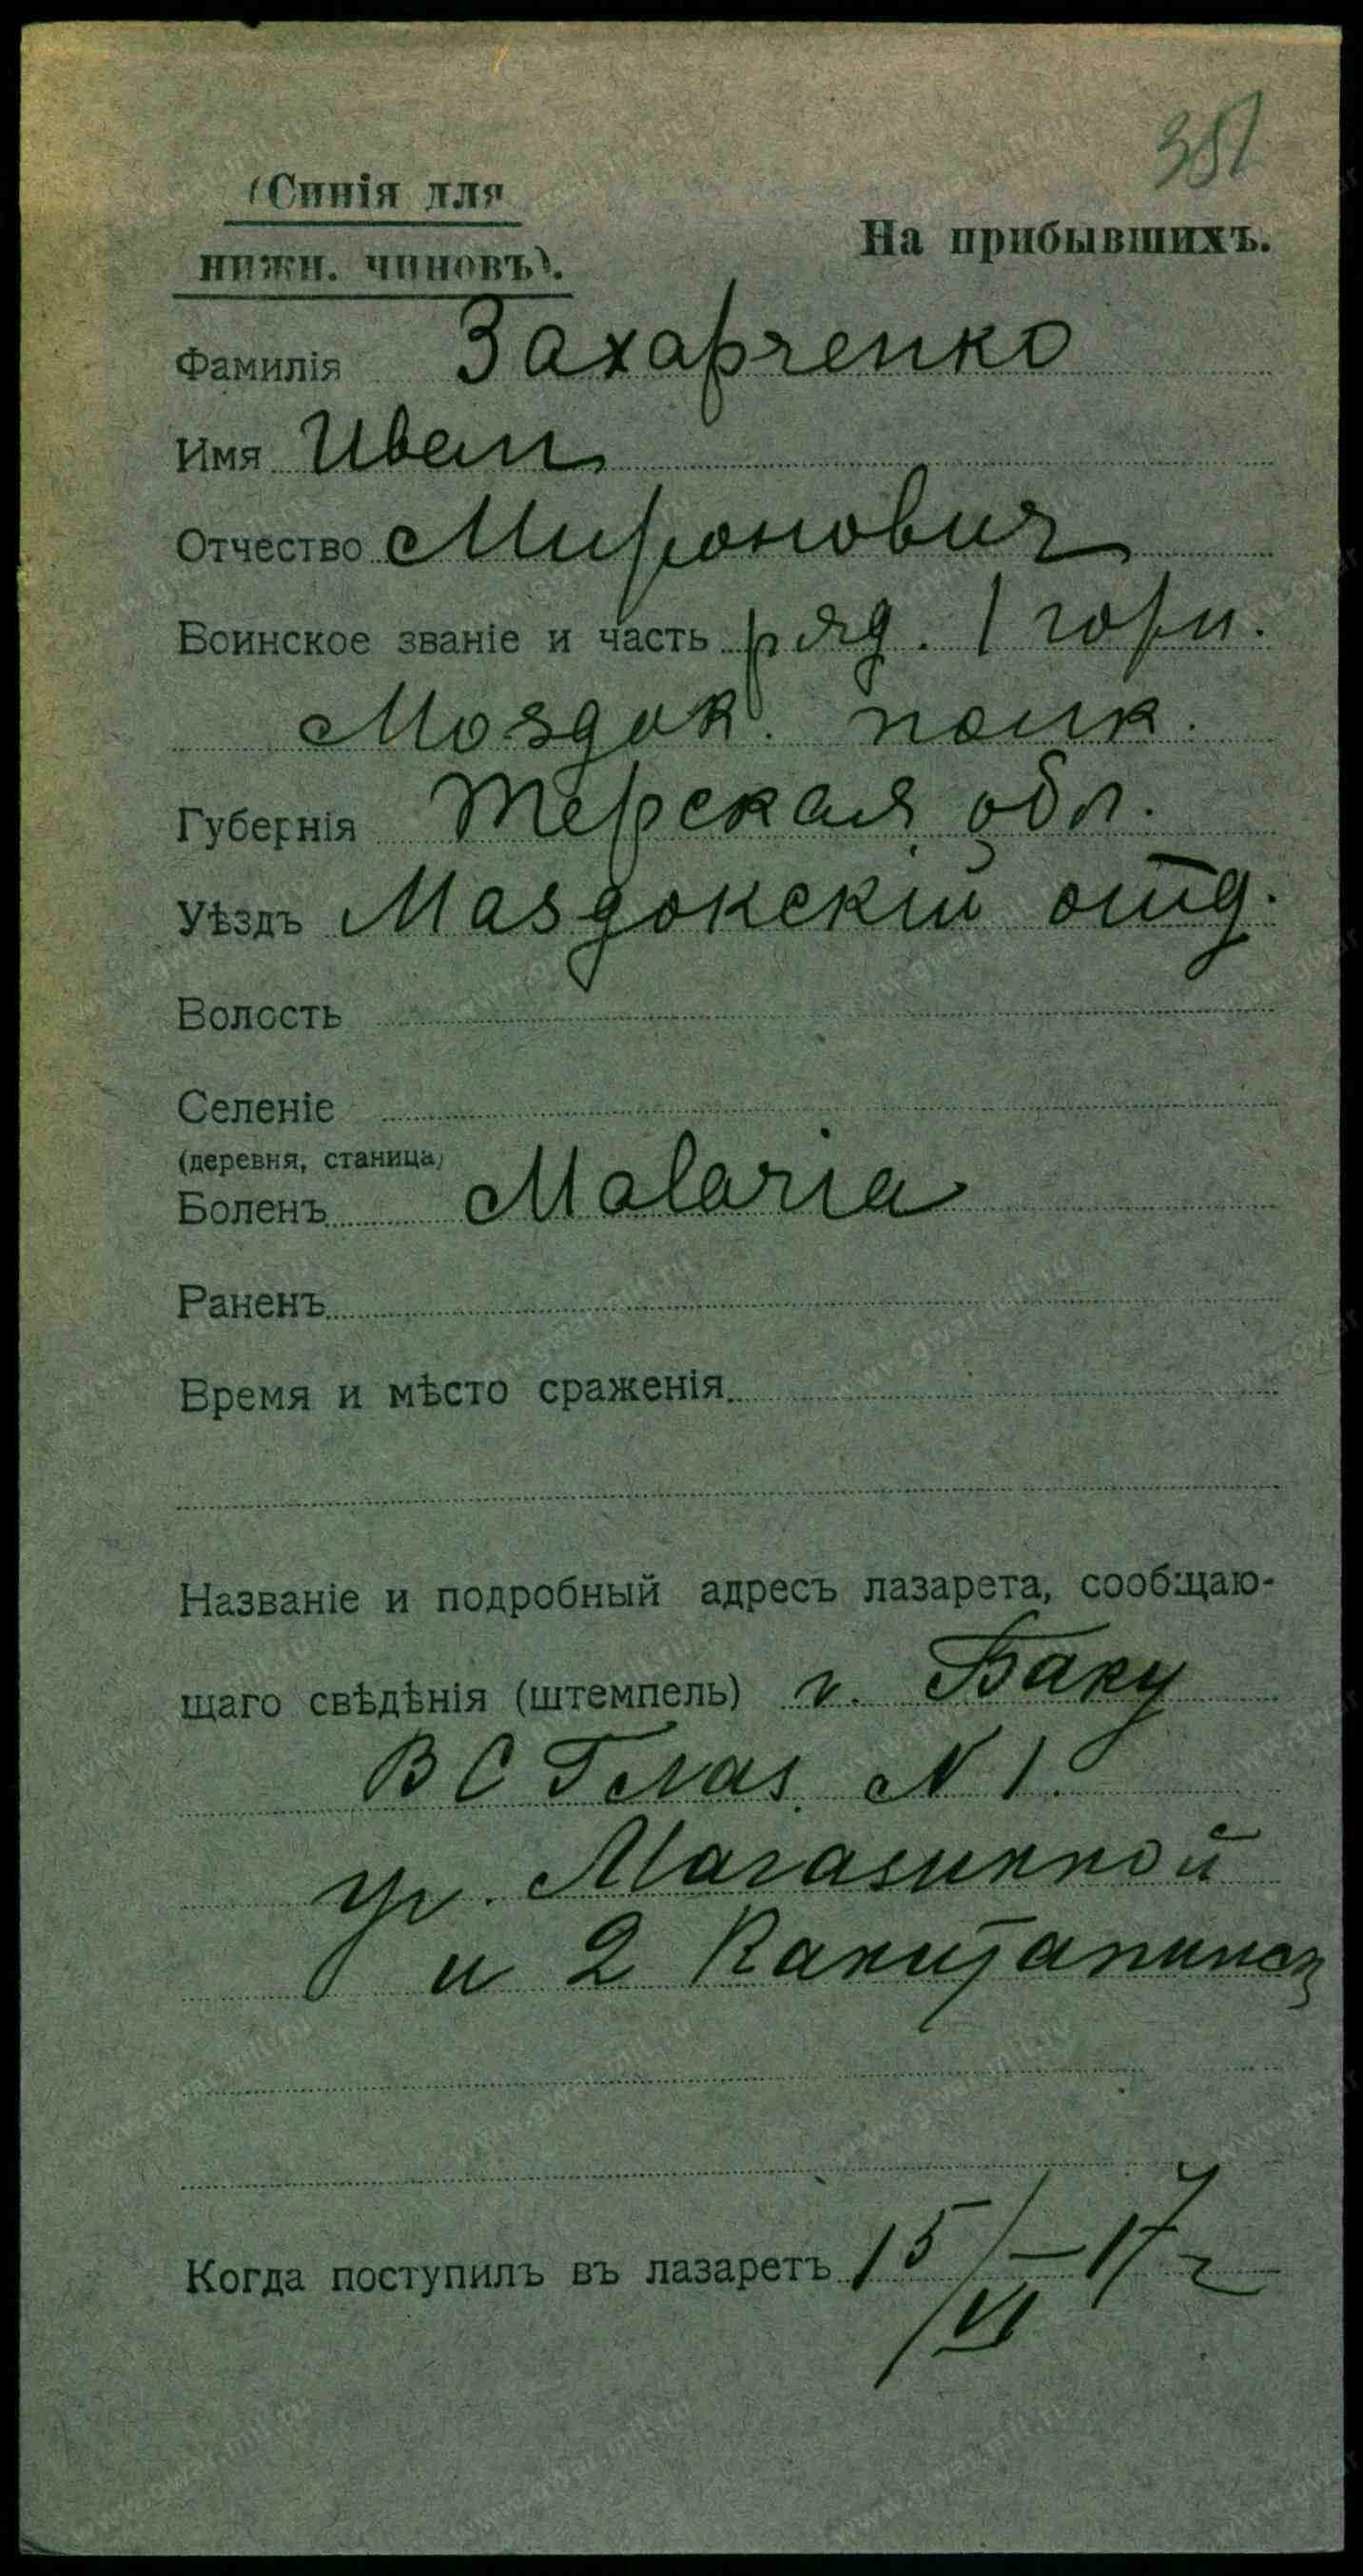 351
(Синія для
нижн. чиновъ).
На прибывшихъ.
Фамилія Захарченко
Имя Иван
Отчество Миронович
Воинское званіе и часть ряд. 1 горн.
Моздок. полк.
Губернія Терская обл.
Уѣздъ Маздокскій отд.
Волость
Селеніе
(деревня, станица)
Боленъ Malaria
Раненъ
Время и мѣсто сраженія
Названіе и подробный адресъ лазарета, сообщаю-
щаго свѣдѣнія (штемпель) г. Баку
В С Г лаз. N 1.
уг. Магазинной
и 2
Когда поступилъ въ лазаретъ 15/VI — 17 г
www.gwar.mil.ru